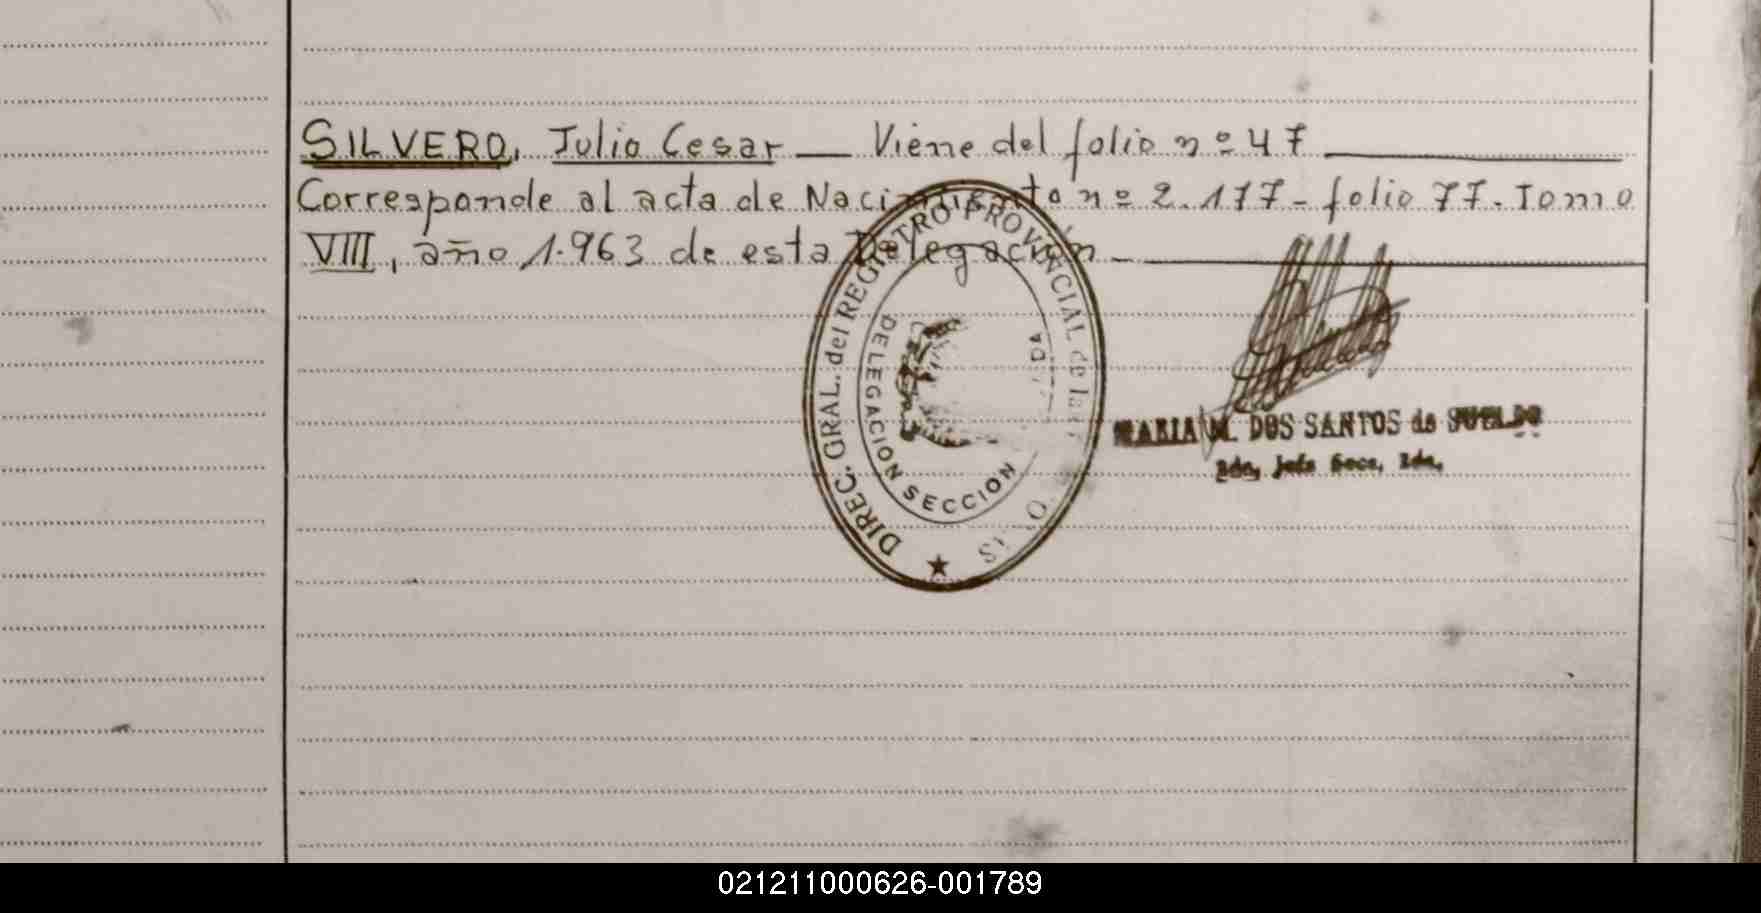 SILVERO, Julio Cesar — Viene del folio nº 47
Corresponde al acta de Nacimiento nº 2.177 - folio 77. Tomo
VIII, año 1.963 de esta Delegación
DIREC. GRAL. del REGISTRO PROVINCIAL de las
DELEGACION SECCION
MARIA M. DOS SANTOS de
2da, Jefe Secc, 2da,
021211000626-001789